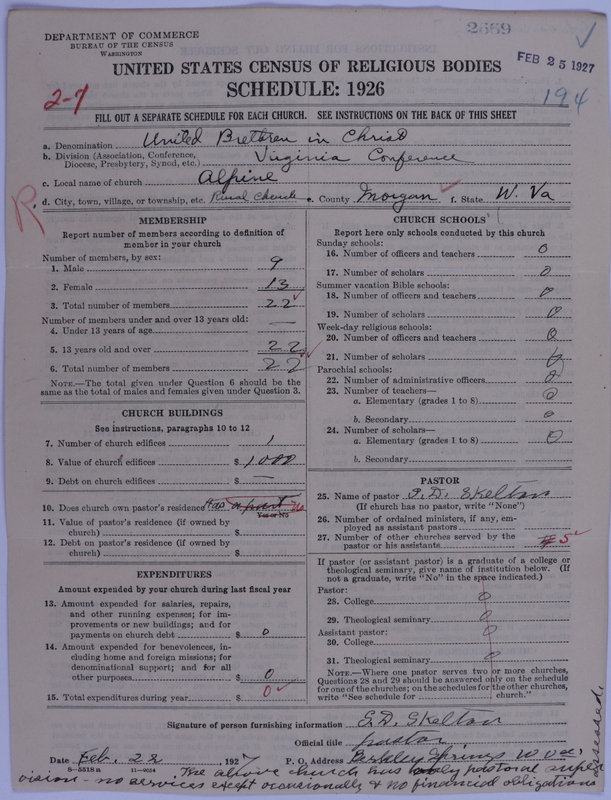 2669
DEPARTMENT OF COMMERCE
BUREAU OF THE CENSUS
WASHINGTON
FEB 25 1927
UNITED STATES CENSUS OF RELIGIOUS BODIES
2-7
SCHEDULE: 1926
194
FILL OUT A SEPARATE SCHEDULE FOR EACH CHURCH. SEE INSTRUCTIONS ON THE BACK OF THIS SHEET
a. Denomination United Brethren in Christ
b. Division (Association, Conference, Diocese, Presbytery, Synod, etc.) Virginia Conference
c. Local name of church Alpine
R. d. City, town, village, or township, etc. Rural Church e. County Morgan f. State W. Va
MEMBERSHIP
Report number of members according to definition of
member in your church
Number of members, by sex:
1. Male 9
2. Female 13
3. Total number of members 22
Number of members under and over 13 years old:
4. Under 13 years of age —
5. 13 years old and over 22
6. Total number of members 22
NOTE.—The total given under Question 6 should be
same as the total of males and females given under Question 3.
CHURCH BUILDINGS
See instructions, paragraphs 10 to 12
7. Number of church edifices 1
8. Value of church edifices $ 1000
9. Debt on church edifices $ —
10. Does church own pastor's residence Has a part no
Yes or No
11. Value of pastor's residence (if owned by
church) $
12. Debt on pastor's residence (if owned by
church) $
EXPENDITURES
Amount expended by your church during last fiscal year
13. Amount expended for salaries, repairs,
and other running expenses; for im-
provements or new buildings; and for
payments on church debt $ 0
14. Amount expended for benevolences, in-
cluding home and foreign missions; for
denominational support; and for all
other purposes $ 0
15. Total expenditures during year $ 0
CHURCH SCHOOLS
Report here only schools conducted by this church
Sunday schools:
16. Number of officers and teachers 0
17. Number of scholars 0
Summer vacation Bible schools:
18. Number of officers and teachers 0
19. Number of scholars 0
Week-day religious schools:
20. Number of officers and teachers 0
21. Number of scholars 0
Parochial schools:
22. Number of administrative officers 0
23. Number of teachers—
a. Elementary (grades 1 to 8) 0
b. Secondary 0
24. Number of scholars—
a. Elementary (grades 1 to 8) 0
b. Secondary
PASTOR
25. Name of pastor E. D. Skelton
(If church has no pastor, write "None")
26. Number of ordained ministers, if any, em-
ployed as assistant pastors
27. Number of other churches served by the
pastor or his assistants 5
If pastor (or assistant pastor) is a graduate of a college or
theological seminary, give name of institution below. (If
not a graduate, write "No" in the space indicated.)
Pastor:
28. College 0
29. Theological seminary 0
Assistant pastor:
30. College 0
31. Theological seminary 0
NOTE.—Where one pastor serves two or more churches,
Questions 28 and 29 should be answered only on the schedule
for one of the churches; on the schedules for the other churches,
write "See schedule for church."
Signature of person furnishing information E. D. Skelton
Official title pastor
Date Feb. 22, 1927 P. O. Address Berkley Springs W Va.
8—5518 a 11—9024
The above church has only pastoral super
vision - no services except occasionally & no financial obligations
assessed.